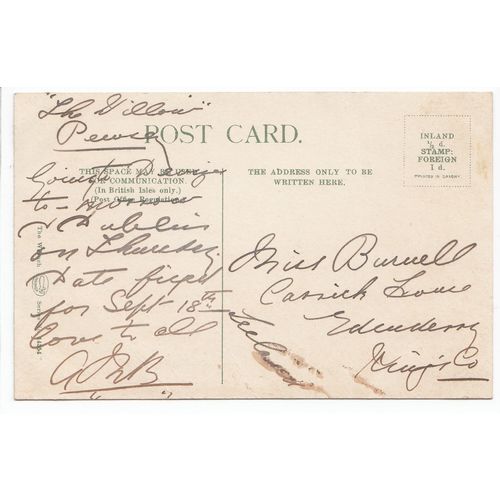 "The Willow"
Pewsey
POST CARD.
THIS SPACE MAY BE USED
FOR COMMUNICATION.
(In British Isles only.)
(Post Office Regulation).
THE ADDRESS ONLY TO BE
WRITTEN HERE.
INLAND
½ d.
STAMP:
FOREIGN
1 d.
PRINTED IN SAXONY
Going to
to-morrow
Dublin
on Thursday
Date fixed
for Sept 18th
love to all
Miss Burnell
Carrick House
Edenderry
King's Co
Ireland
The Series